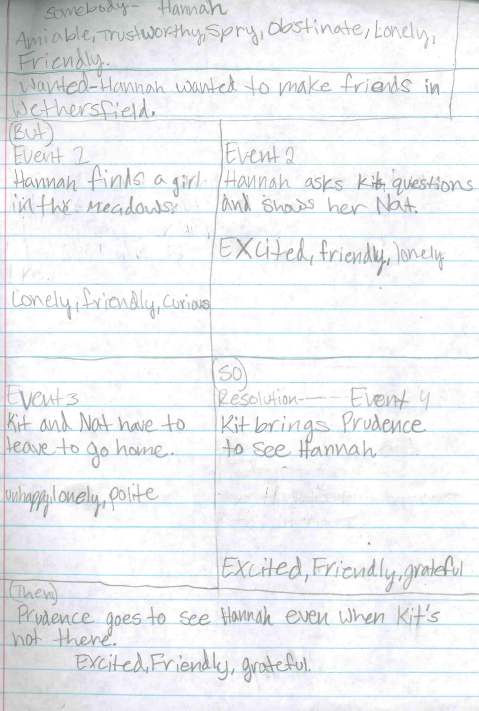 Somebody- Hannah
Amiable, Trustworthy, Spry, Obstinate, Lonely,
Friendly.
Wanted-Hannah wanted to make friends in
Wethersfield.
(But)
Event 1
Hannah finds a girl
in the Meadows.
Lonely, friendly, curious
Event 2
Hannah asks Kit questions
and shows her Nat.
EXcited, friendly, lonely
Event 3
Kit and Nat have to
leave to go home.
unhappy, lonely, polite
(SO)
Resolution---- Event 4
Kit brings Prudence
to see Hannah
EXcited, Friendly, grateful
(Then)
Prudence goes to see Hannah even when Kit's
not there.
Excited, Friendly, grateful.